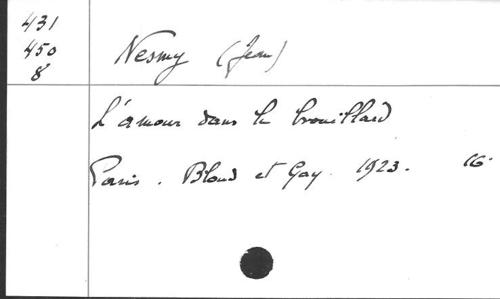 431
450
8
Nesmy (Jean)
L'amour dans le brouillard
Paris. Bloud et Gay. 1923. 16°